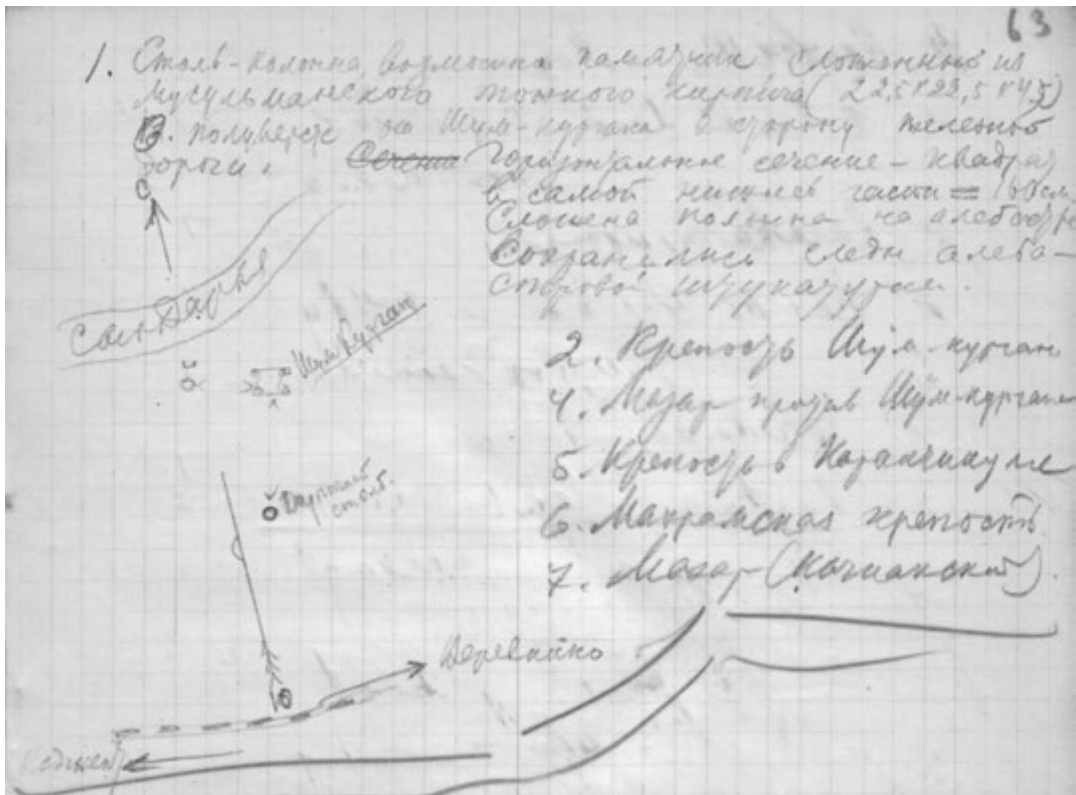 63
1. Столб-колонна, возможно памятник сложенный из
мусульманского тонкого кирпича (22,5×22,5×4,5)
В полуверсте за Шум-курган в сторону железной
дороги. Сечение Горизонтальное сечение – квадрат
в самой нижней части =
Сложена на алебастре
Сохранились следы алеба-
стровой штукатурки.
С
Сыр Дарья
Шум Курган
2. Крепость Шум-курган
4. Мазар против Шум-курган
5. Крепость в Каранчикуме
столб.
6. Махрамская крепость
7. Мазар